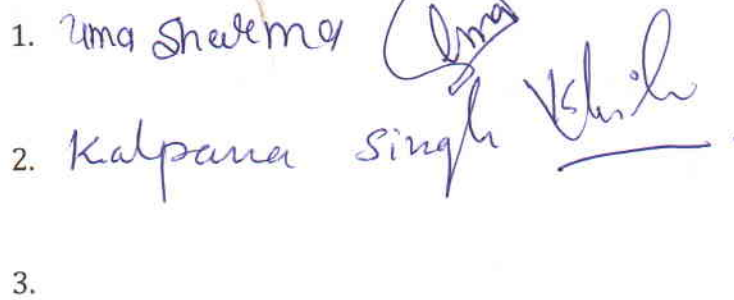 1. Uma Sharma Uma
2. Kalpana Singh
3.